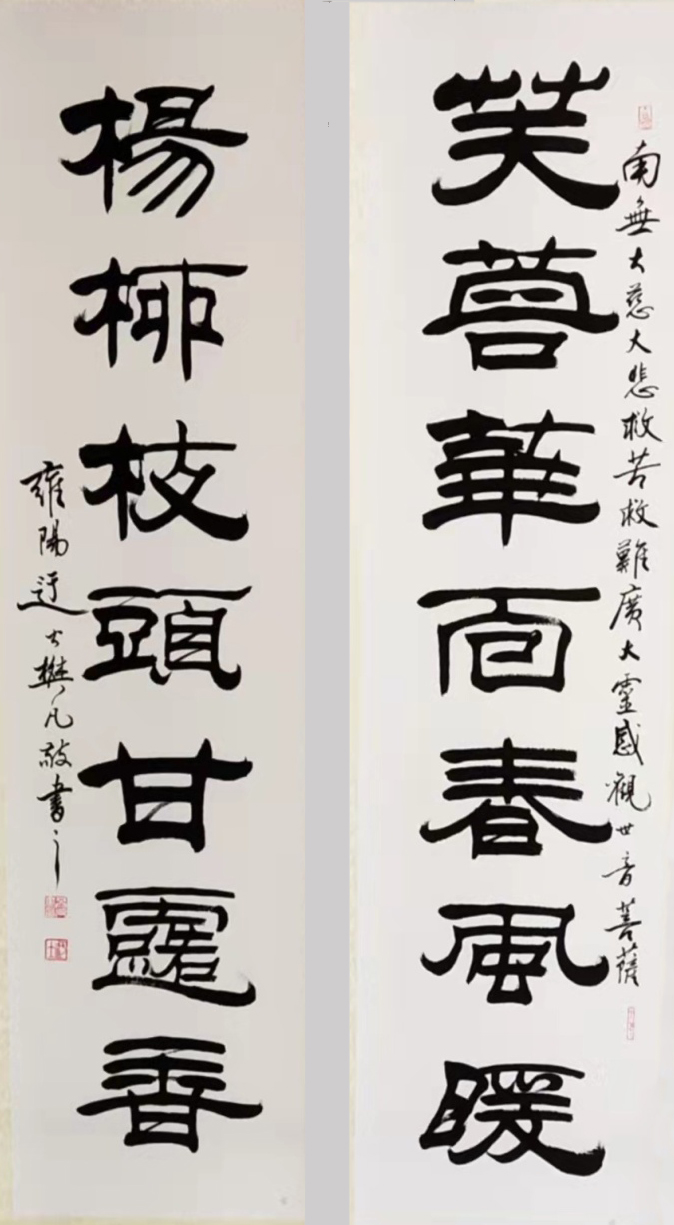 芙蓉華面春風暖
南無大慈大悲救苦救難廣大靈感觀世音菩薩
楊柳枝頭甘露香
雍陽迂士樊凡敬書